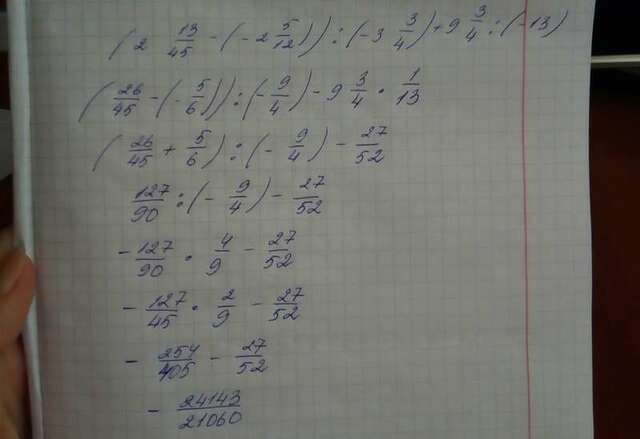 (2 13/45 - (-2 5/12)) : (-3 3/4) + 9 3/4 : (-13)
(26/45 - (-5/6)) : (-9/4) - 9 3/4 · 1/13
(26/45 + 5/6) : (-9/4) - 27/52
127/90 : (-9/4) - 27/52
-127/90 · 4/9 - 27/52
-127/45 · 2/9 - 27/52
-254/405 - 27/52
-24143/21060